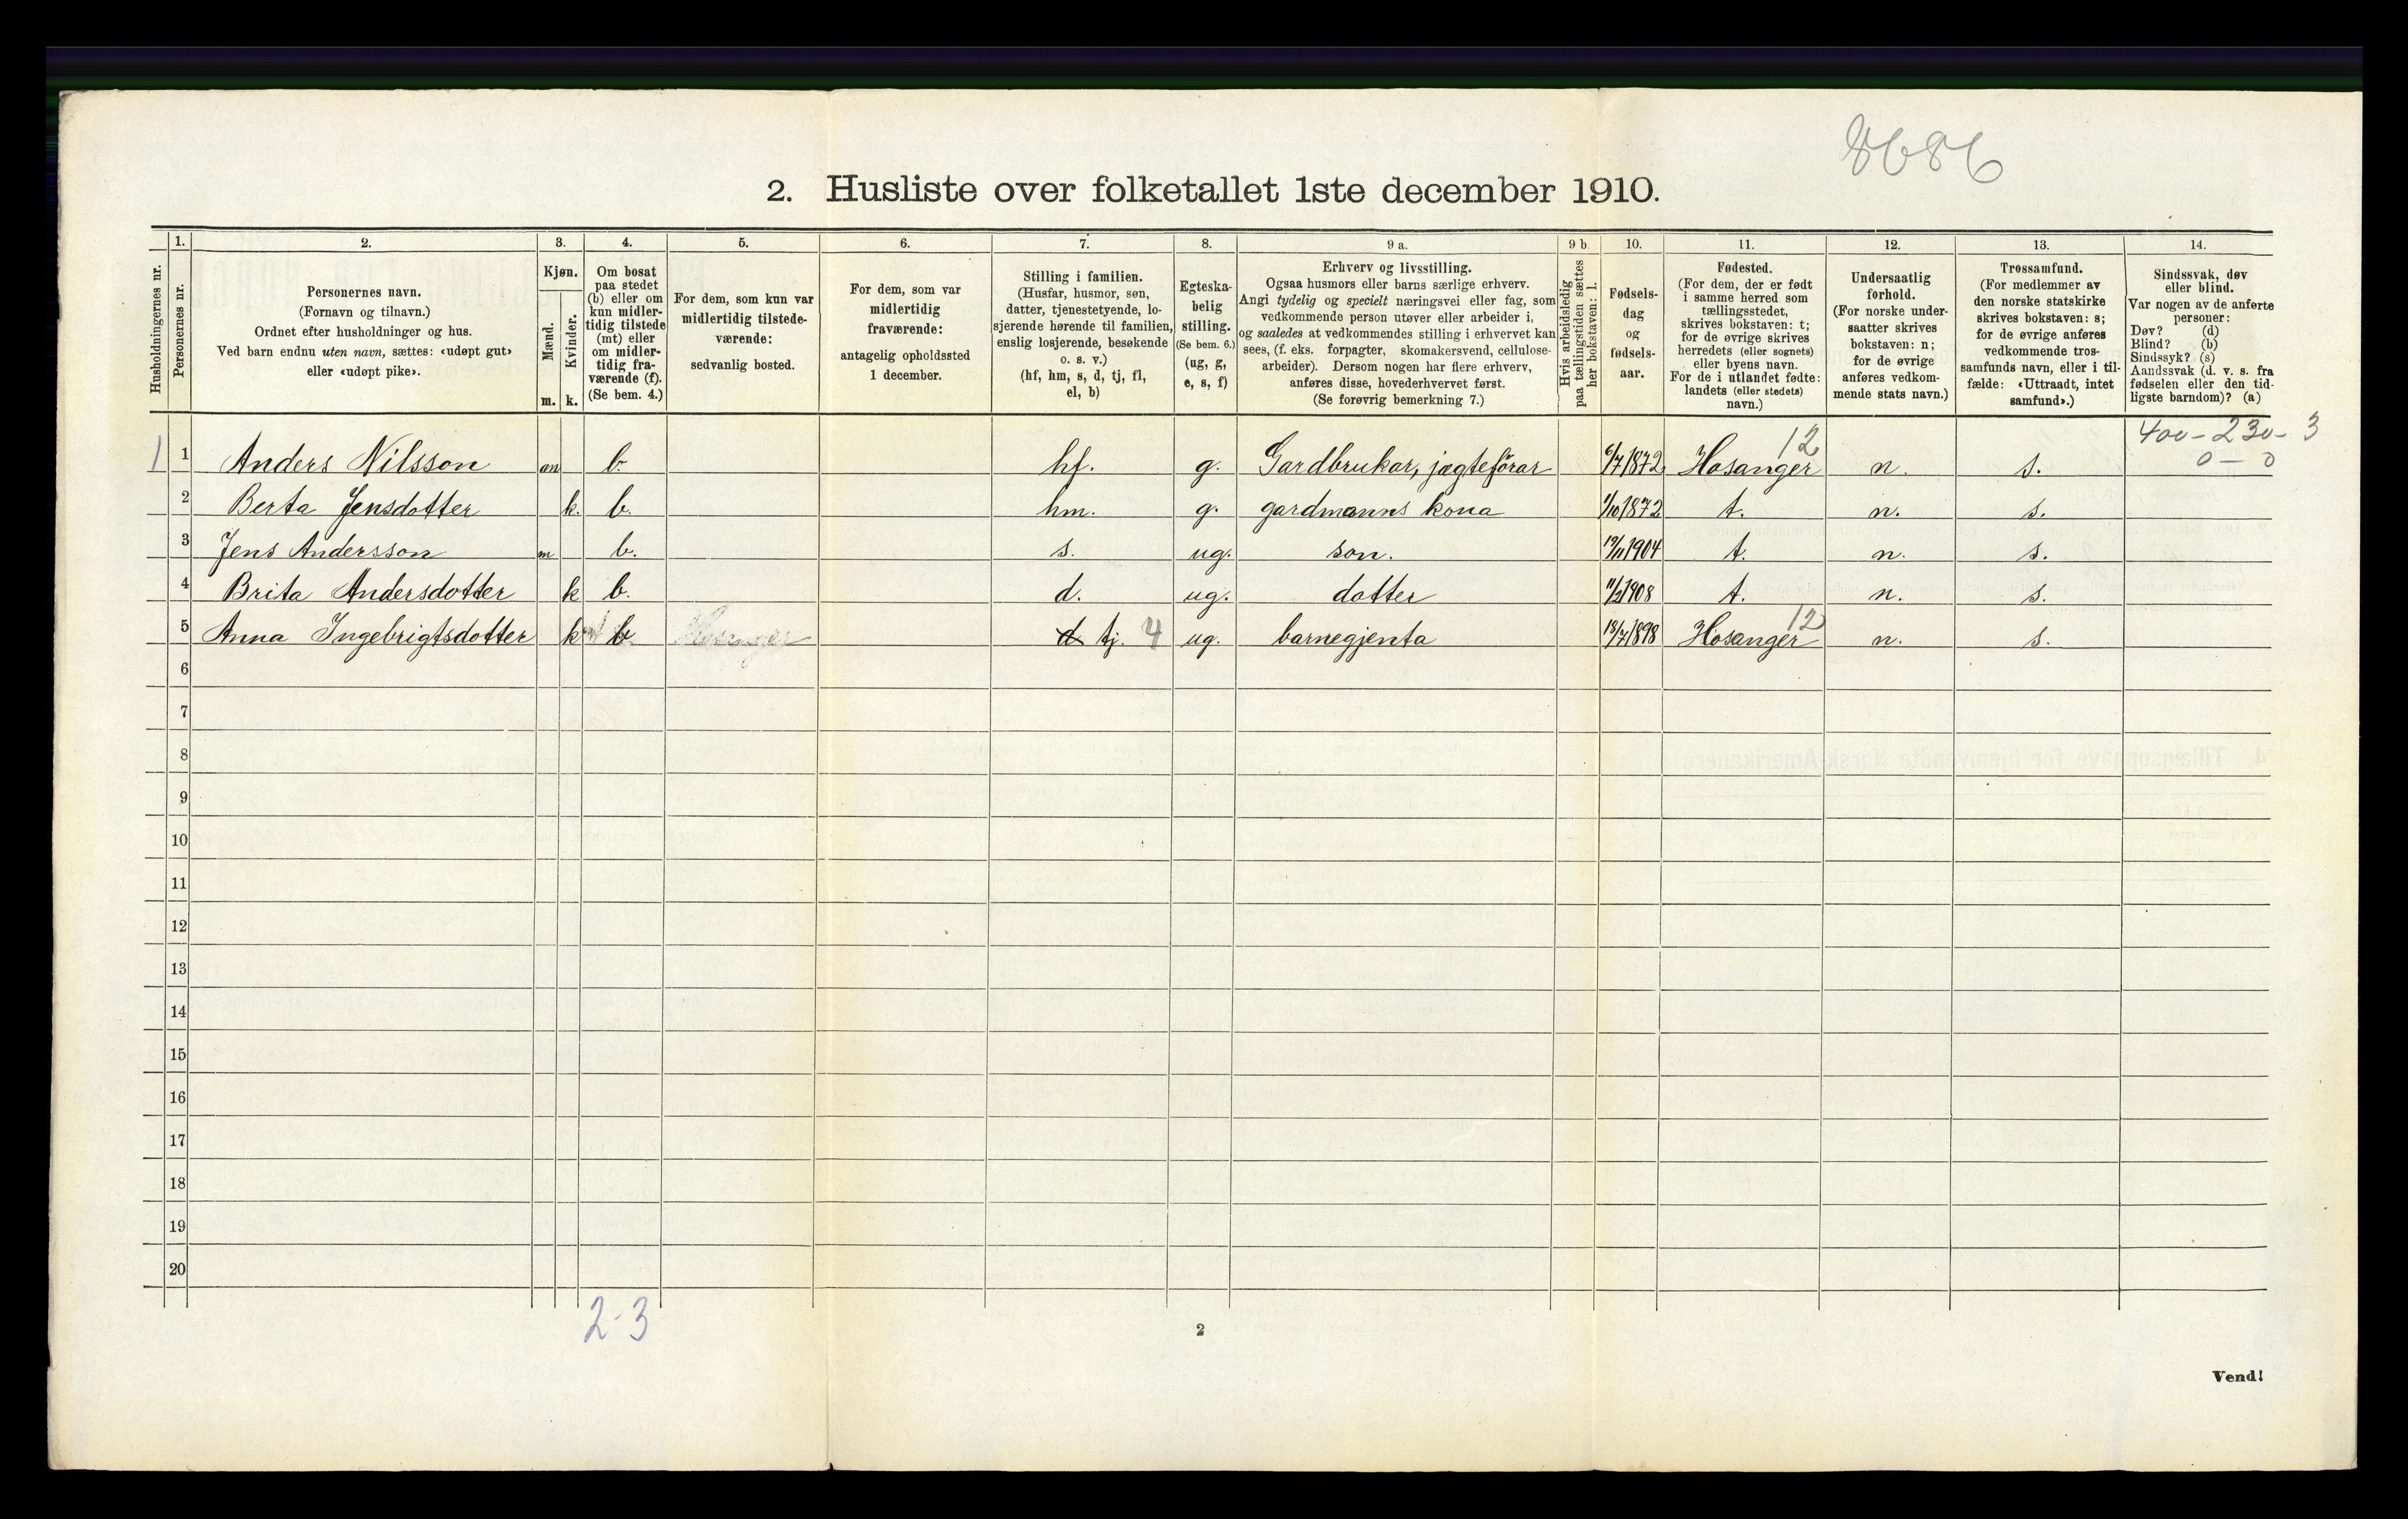 8686
2. Husliste over folketallet 1ste december 1910.
1. 2. 3. 4. 5. 6. 7. 8. 9 a. 9 b. 10. 11. 12. 13. 14.
Husholdningernes nr.
Personernes nr.
Personernes navn.
(Fornavn og tilnavn.)
Ordnet efter husholdninger og hus.
Ved barn endnu uten navn, sættes: «udøpt gut»
eller «udøpt pike».
Kjøn.
Mænd.
Kvinder.
m. k.
Om bosat
paa stedet
(b) eller om
kun midler-
tidig tilstede
(mt) eller
om midler-
tidig fra-
værende (f).
(Se bem. 4.)
For dem, som kun var
midlertidig tilstede-
værende:
sedvanlig bosted.
For dem, som var
midlertidig
fraværende:
antagelig opholdssted
1 december.
Stilling i familien.
(Husfar, husmor, søn,
datter, tjenestetyende, lo-
sjerende hørende til familien,
enslig losjerende, besøkende
o. s. v.)
(hf, hm, s, d, tj, fl,
el, b)
Egteska-
belig
stilling.
(Se bem. 6.)
(ug, g,
e, s, f)
Erhverv og livsstilling.
Ogsaa husmors eller barns særlige erhverv.
Angi tydelig og specielt næringsvei eller fag, som
vedkommende person utøver eller arbeider i,
og saaledes at vedkommendes stilling i erhvervet kan
sees, (f. eks. forpagter, skomakersvend, cellulose-
arbeider). Dersom nogen har flere erhverv,
anføres disse, hovederhvervet først.
(Se forøvrig bemerkning 7.)
Hvis arbeidsledig
paa tællingstiden sættes
her bokstaven: l.
Fødsels-
dag
og
fødsels-
aar.
Fødested.
(For dem, der er født
i samme herred som
tællingsstedet,
skrives bokstaven: t;
for de øvrige skrives
herredets (eller sognets)
eller byens navn.
For de i utlandet fødte:
landets (eller stedets)
navn.)
Undersaatlig
forhold.
(For norske under-
saatter skrives
bokstaven: n;
for de øvrige
anføres vedkom-
mende stats navn.)
Trossamfund.
(For medlemmer av
den norske statskirke
skrives bokstaven: s;
for de øvrige anføres
vedkommende tros-
samfunds navn, eller i til-
fælde: «Uttraadt, intet
samfund».)
Sindssvak, døv
eller blind.
Var nogen av de anførte
personer:
Døv? (d)
Blind? (b)
Sindssyk? (s)
Aandssvak (d. v. s. fra
fødselen eller den tid-
ligste barndom)? (a)
12 400-230-3
1 1 Anders Nilsson m b. hf. g. Gardbrukar, jægteförar 6/7 1872 Hosanger n. s. 0-0
2 Berta Jensdotter k. b. hm. g. gardmanns kona 1/10 1872 t. n. s.
3 Jens Andersson m b. s. ug. son. 19/11 1904 t. n. s.
4 Brita Andersdotter k b. d. ug. dotter 11/2 1908 t. n. s.
5 Anna Ingebrigtsdotter k b Hosanger d tj. 4 ug. barnegjenta 18/7 1898 Hosanger 12 n. s.
6
7
8
9
10
11
12
13
14
15
16
17
18
19
20
2-3
2
Vend!